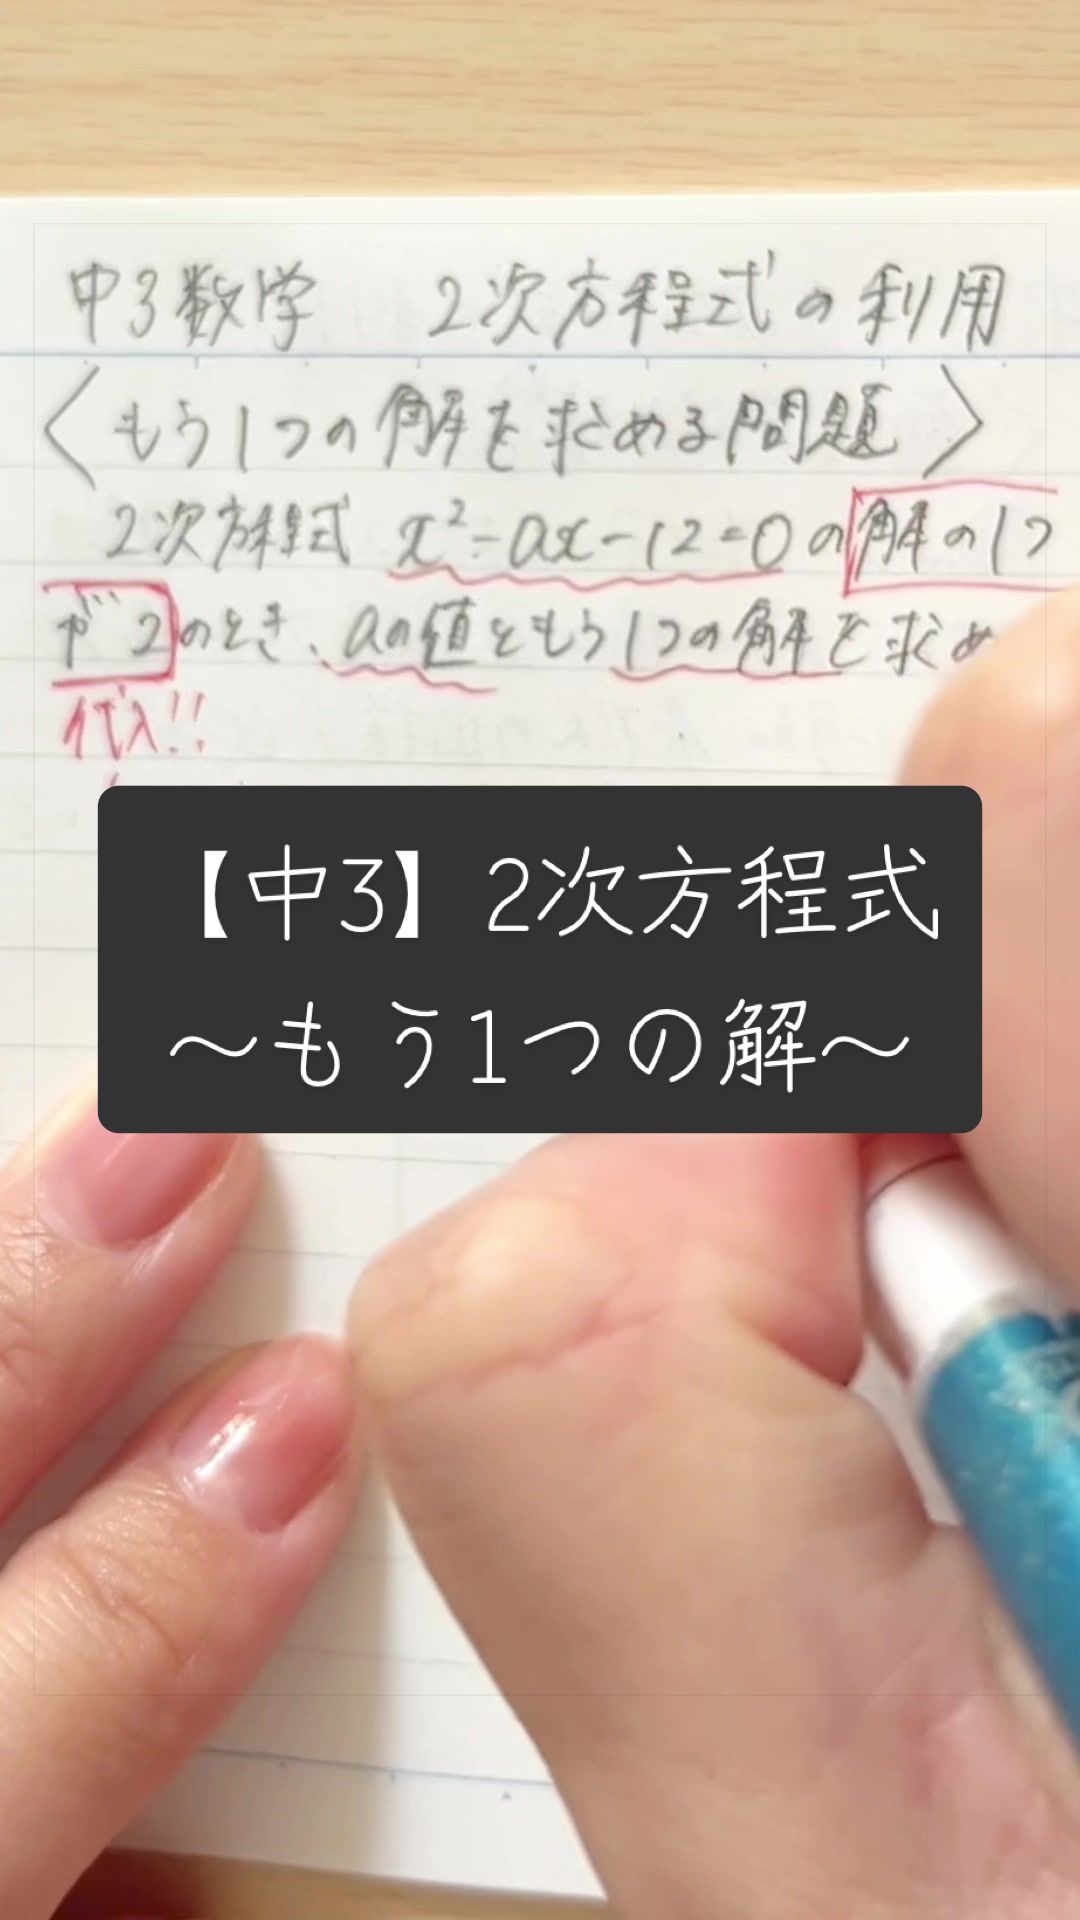 中3数学 2次方程式の利用
〈もう1つの解を求める問題〉
2次方程式 x²-ax-12=0の解の1つ
が2のとき、aの値ともう1つの解を求め
代入!!
【中3】2次方程式
〜もう1つの解〜